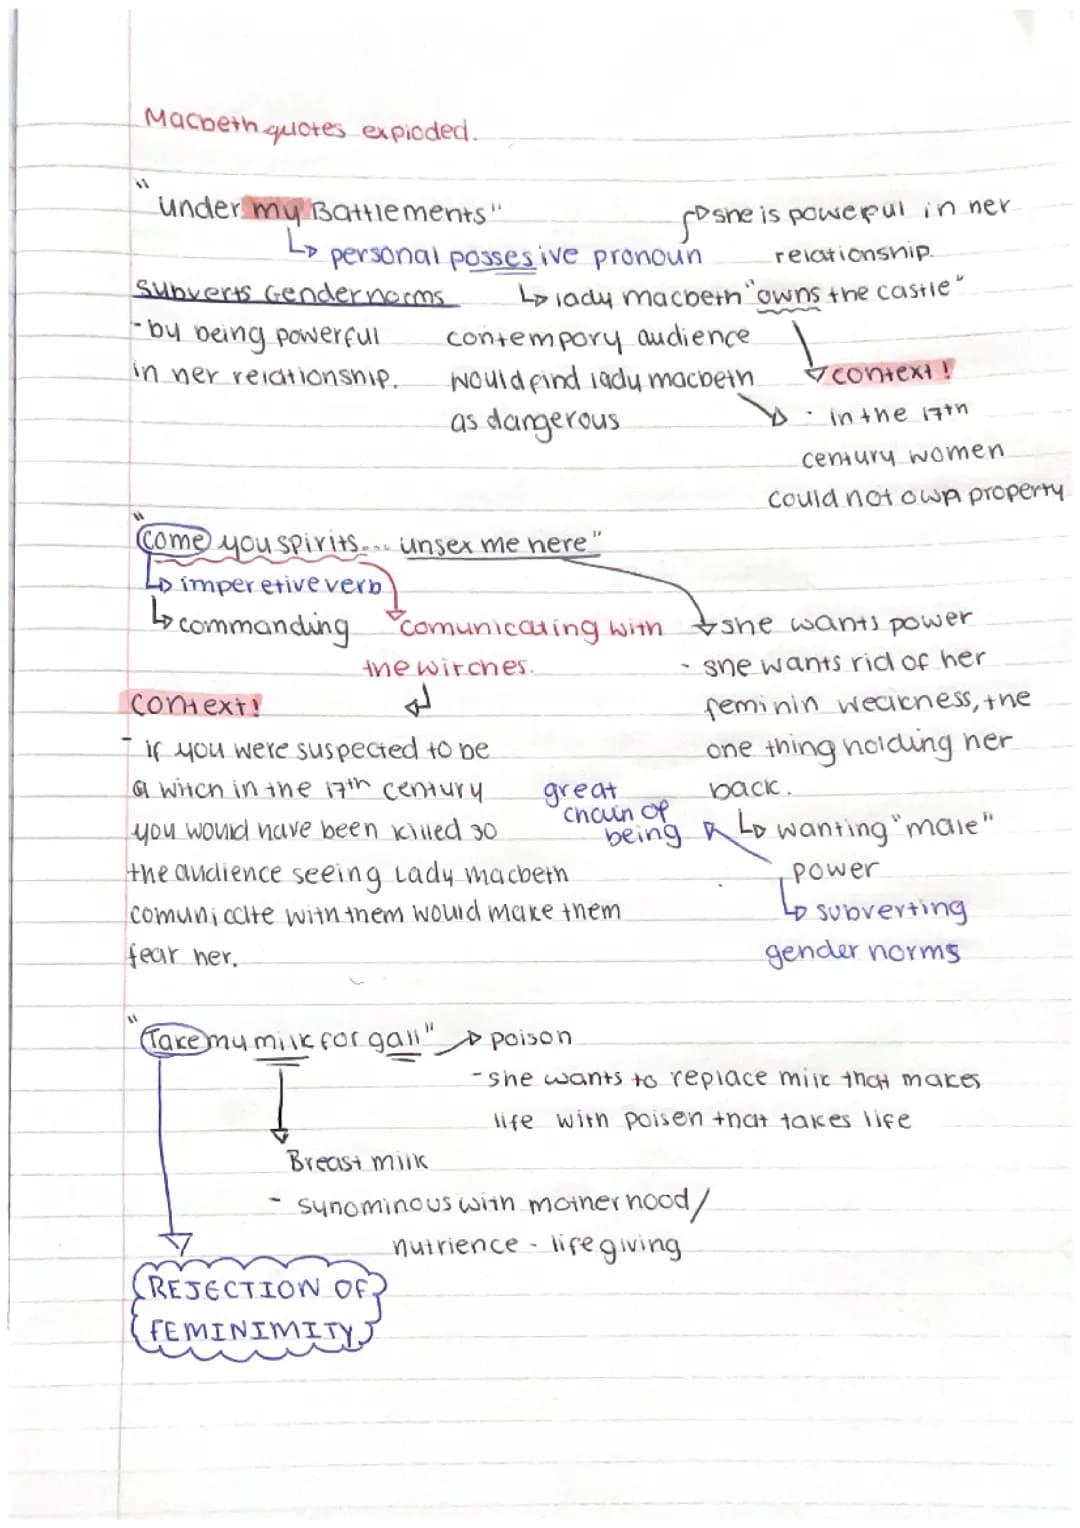 Macbeth quotes exploded.
"under my Battlements"
↳ personal possesive pronoun
she is powerful in her
relationship.
Subverts Gender norms
- by being powerful
in her relationship.
↳ lady macbeth "owns the castle"
contempory audience
would find lady macbeth
as dangerous
context!
· in the 17th
century women
could not own property
"Come you spirits... unsex me here"
↳ imperetive verb
↳ commanding
comunicating with
the witches.
she wants power
- she wants rid of her
feminin weakness, the
one thing holding her
back.
↳ wanting "male"
power
↳ subverting
gender norms
great
chain of
being
context!
- if you were suspected to be
a witch in the 17th century
you would have been killed so
the audience seeing Lady macbeth
comunicate with them would make them
fear her.
"Take my milk for gall" → poison
- she wants to replace milk that makes
life with poisen that takes life
Breast milk
- synominous with motherhood/
nutrience - life giving
REJECTION OF
FEMINIMITY